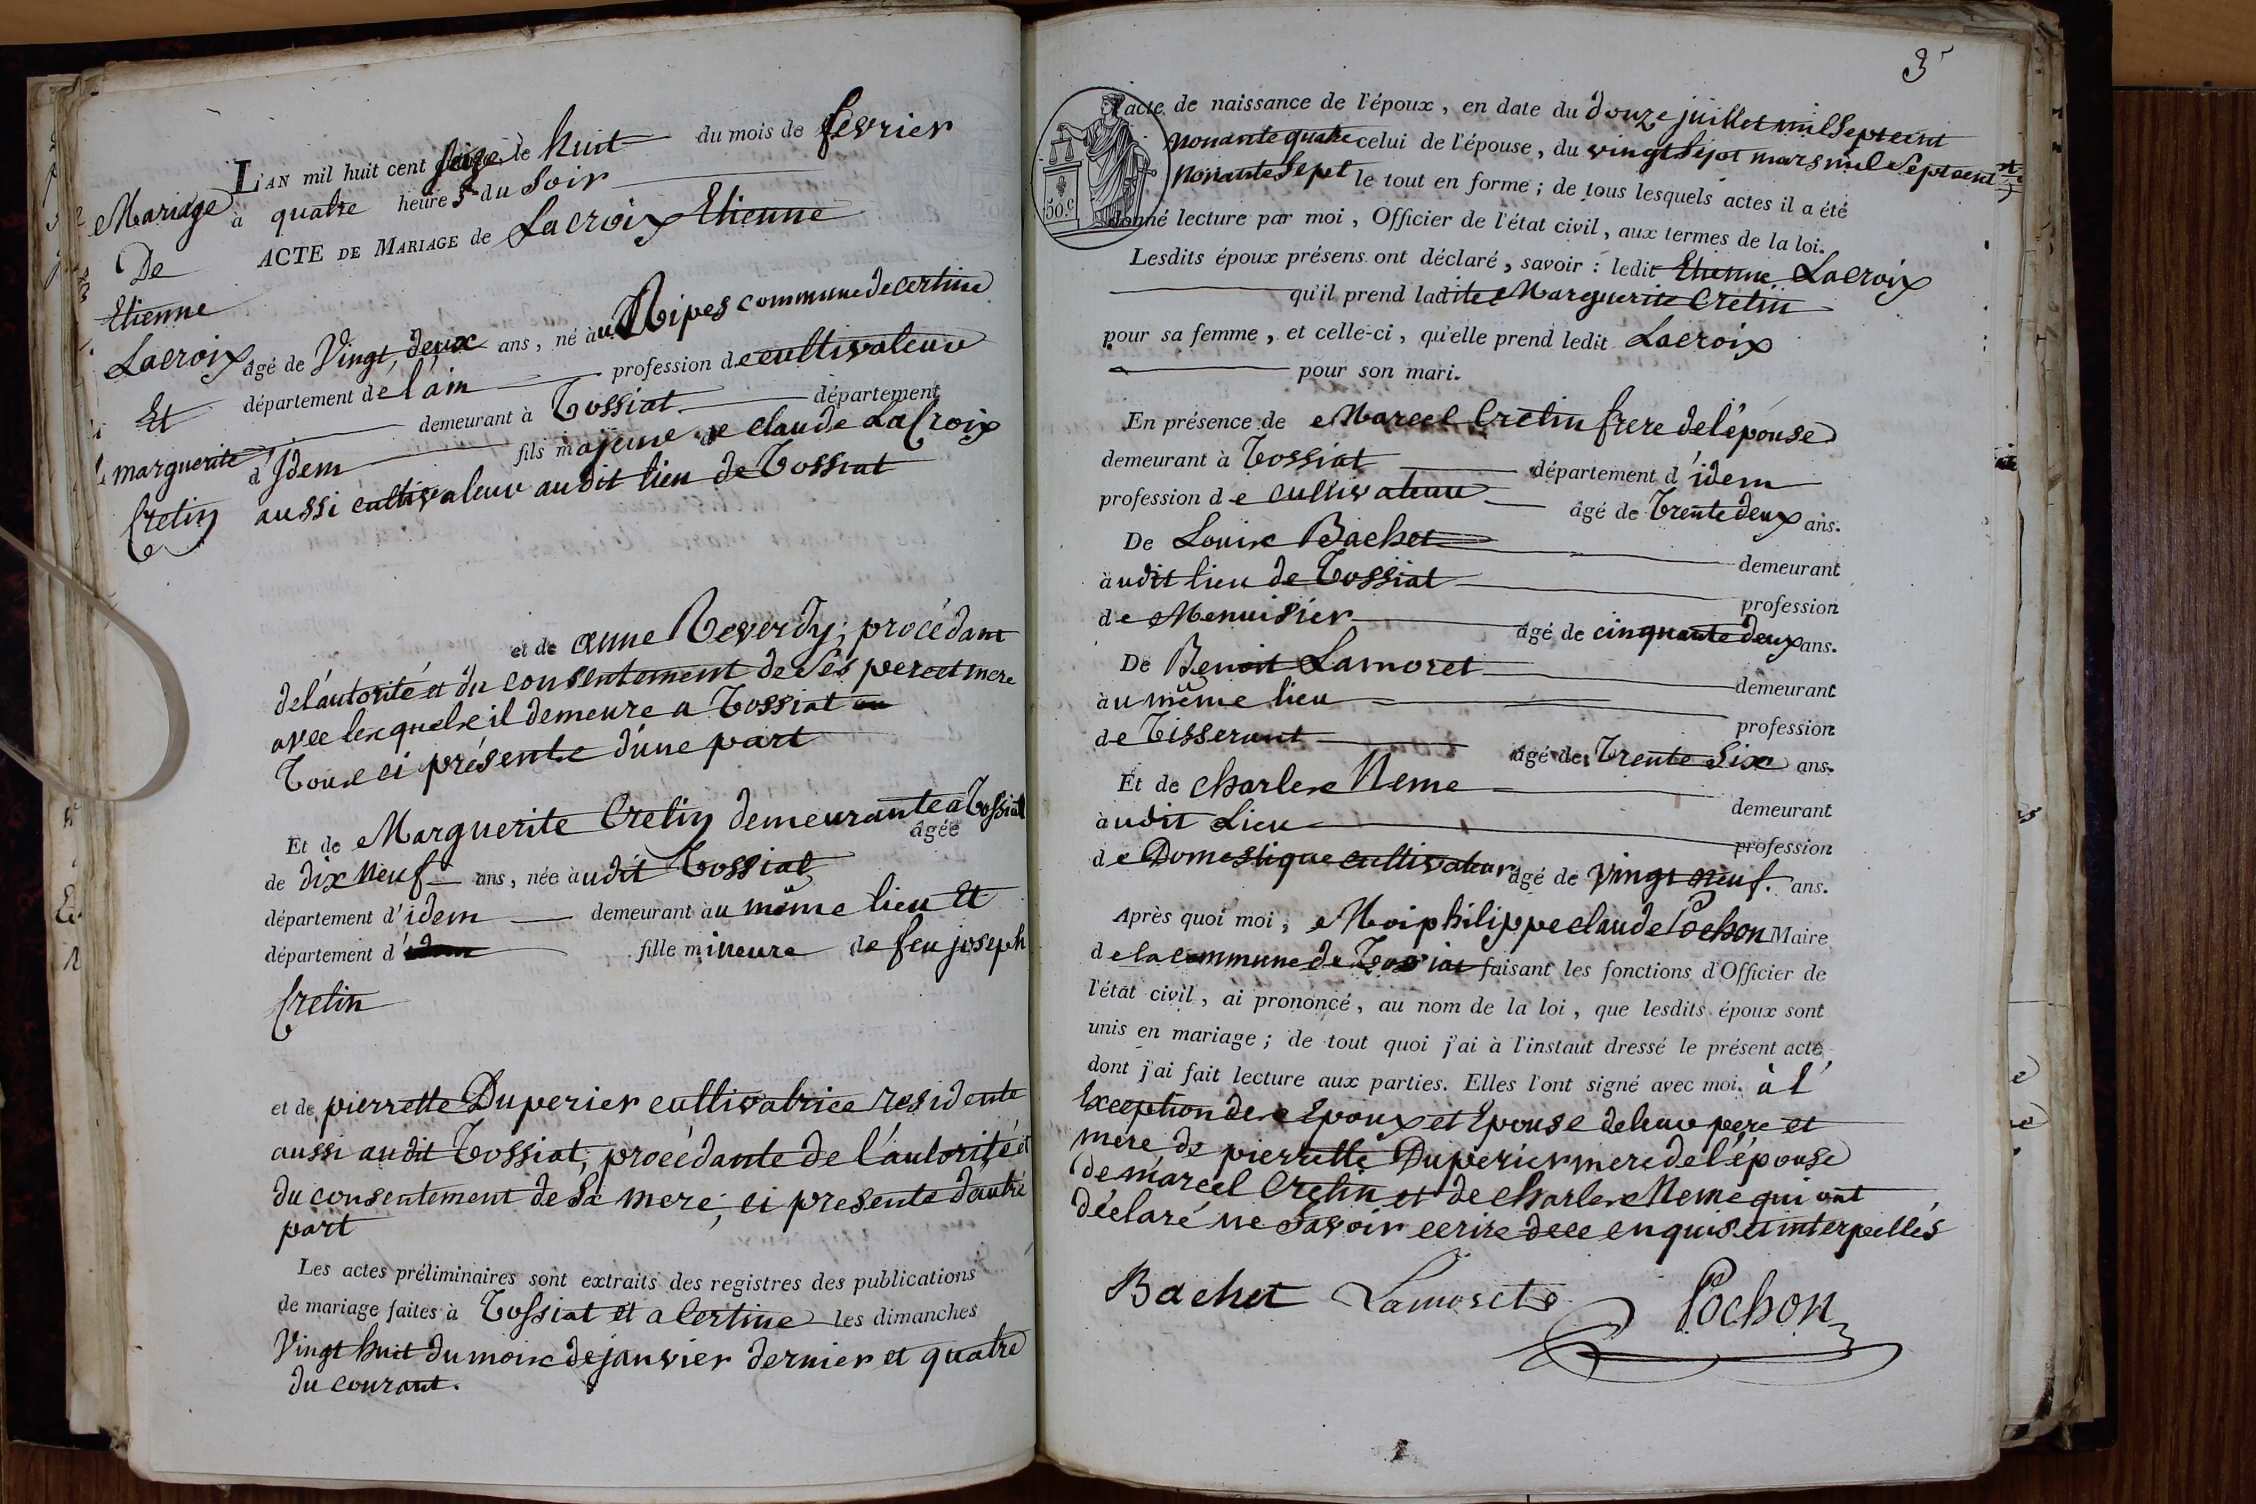 Mariage
De
Etienne
Lacroix
Et
marguerite
Cretin
L'AN mil huit cent seize le huit du mois de fevrier
à quatre heures du Soir
ACTE DE MARIAGE de Lacroix Etienne
âgé de Vingt deux ans, né àu Ripes commune de certine
département de l'ain profession de cultivateur
demeurant à Tossiat département
d'Idem fils majeur de claude LaCroix
aussi cultivateur audit lieu de Tossiat
et de anne Reverdy; procédant
de l'autorité et du consentement de Ses pere et mere
avec lesquels il demeure a Tossiat
Tous ci présents d'une part
Et de Marguerite Cretin demeurante a Tossiat
âgée
de dix Neuf ans, née àudit Tossiat
département d'idem demeurant àu même lieu Et
département d' fille mineure de feu joseph
Cretin
et de pierrette Duperier cultivatrice residente
aussi audit Tossiat, procédante de l'autorité et
du consentement de Sa mere, ci presente d'autre
part
Les actes préliminaires sont extraits des registres des publications
de mariage faites à Tossiat et a Certine les dimanches
Vingt huit du mois de janvier dernier et quatre
du courant.
3
50.c
l'acte de naissance de l'époux, en date du douze juillet mil Sept cent
Nonante quatre celui de l'épouse, du vingt Sept mars mil Sept cent
Nonante Sept le tout en forme; de tous lesquels actes il a été
donné lecture par moi, Officier de l'état civil, aux termes de la loi.
Lesdits époux présens ont déclaré, savoir: ledit Etienne Lacroix
qu'il prend ladite Marguerite Cretin
pour sa femme, et celle-ci, qu'elle prend ledit Lacroix
pour son mari.
En présence de Marcel Cretin frere de l'épouse
demeurant à Tossiat département d'idem
profession de cultivateur âgé de Trente deux ans.
De Louis Bachet demeurant
àudit lieu de Tossiat profession
de Menuisier âgé de cinquante deux ans.
De Benoit Lamoret demeurant
àu même lieu profession
de Tisserant âgé de Trente Six ans.
Et de Charles Neme demeurant
àudit Lieu profession
de Domestique cultivateur âgé de Vingt Neuf. ans.
Après quoi moi, Moi philippe claude Pochon Maire
de la commune de Tossiat faisant les fonctions d'Officier de
l'état civil, ai prononcé, au nom de la loi, que lesdits époux sont
unis en mariage; de tout quoi j'ai à l'instant dressé le présent acte
dont j'ai fait lecture aux parties. Elles l'ont signé avec moi. à l'
Exception des Epoux et Epouse de leur pere et
mere, de pierrette Duperier mere de l'épouse
de marcel Cretin et de Charles Neme qui ont
déclaré ne Savoir ecrire de ce enquis et interpellés
Bachet Lamoret Pochon